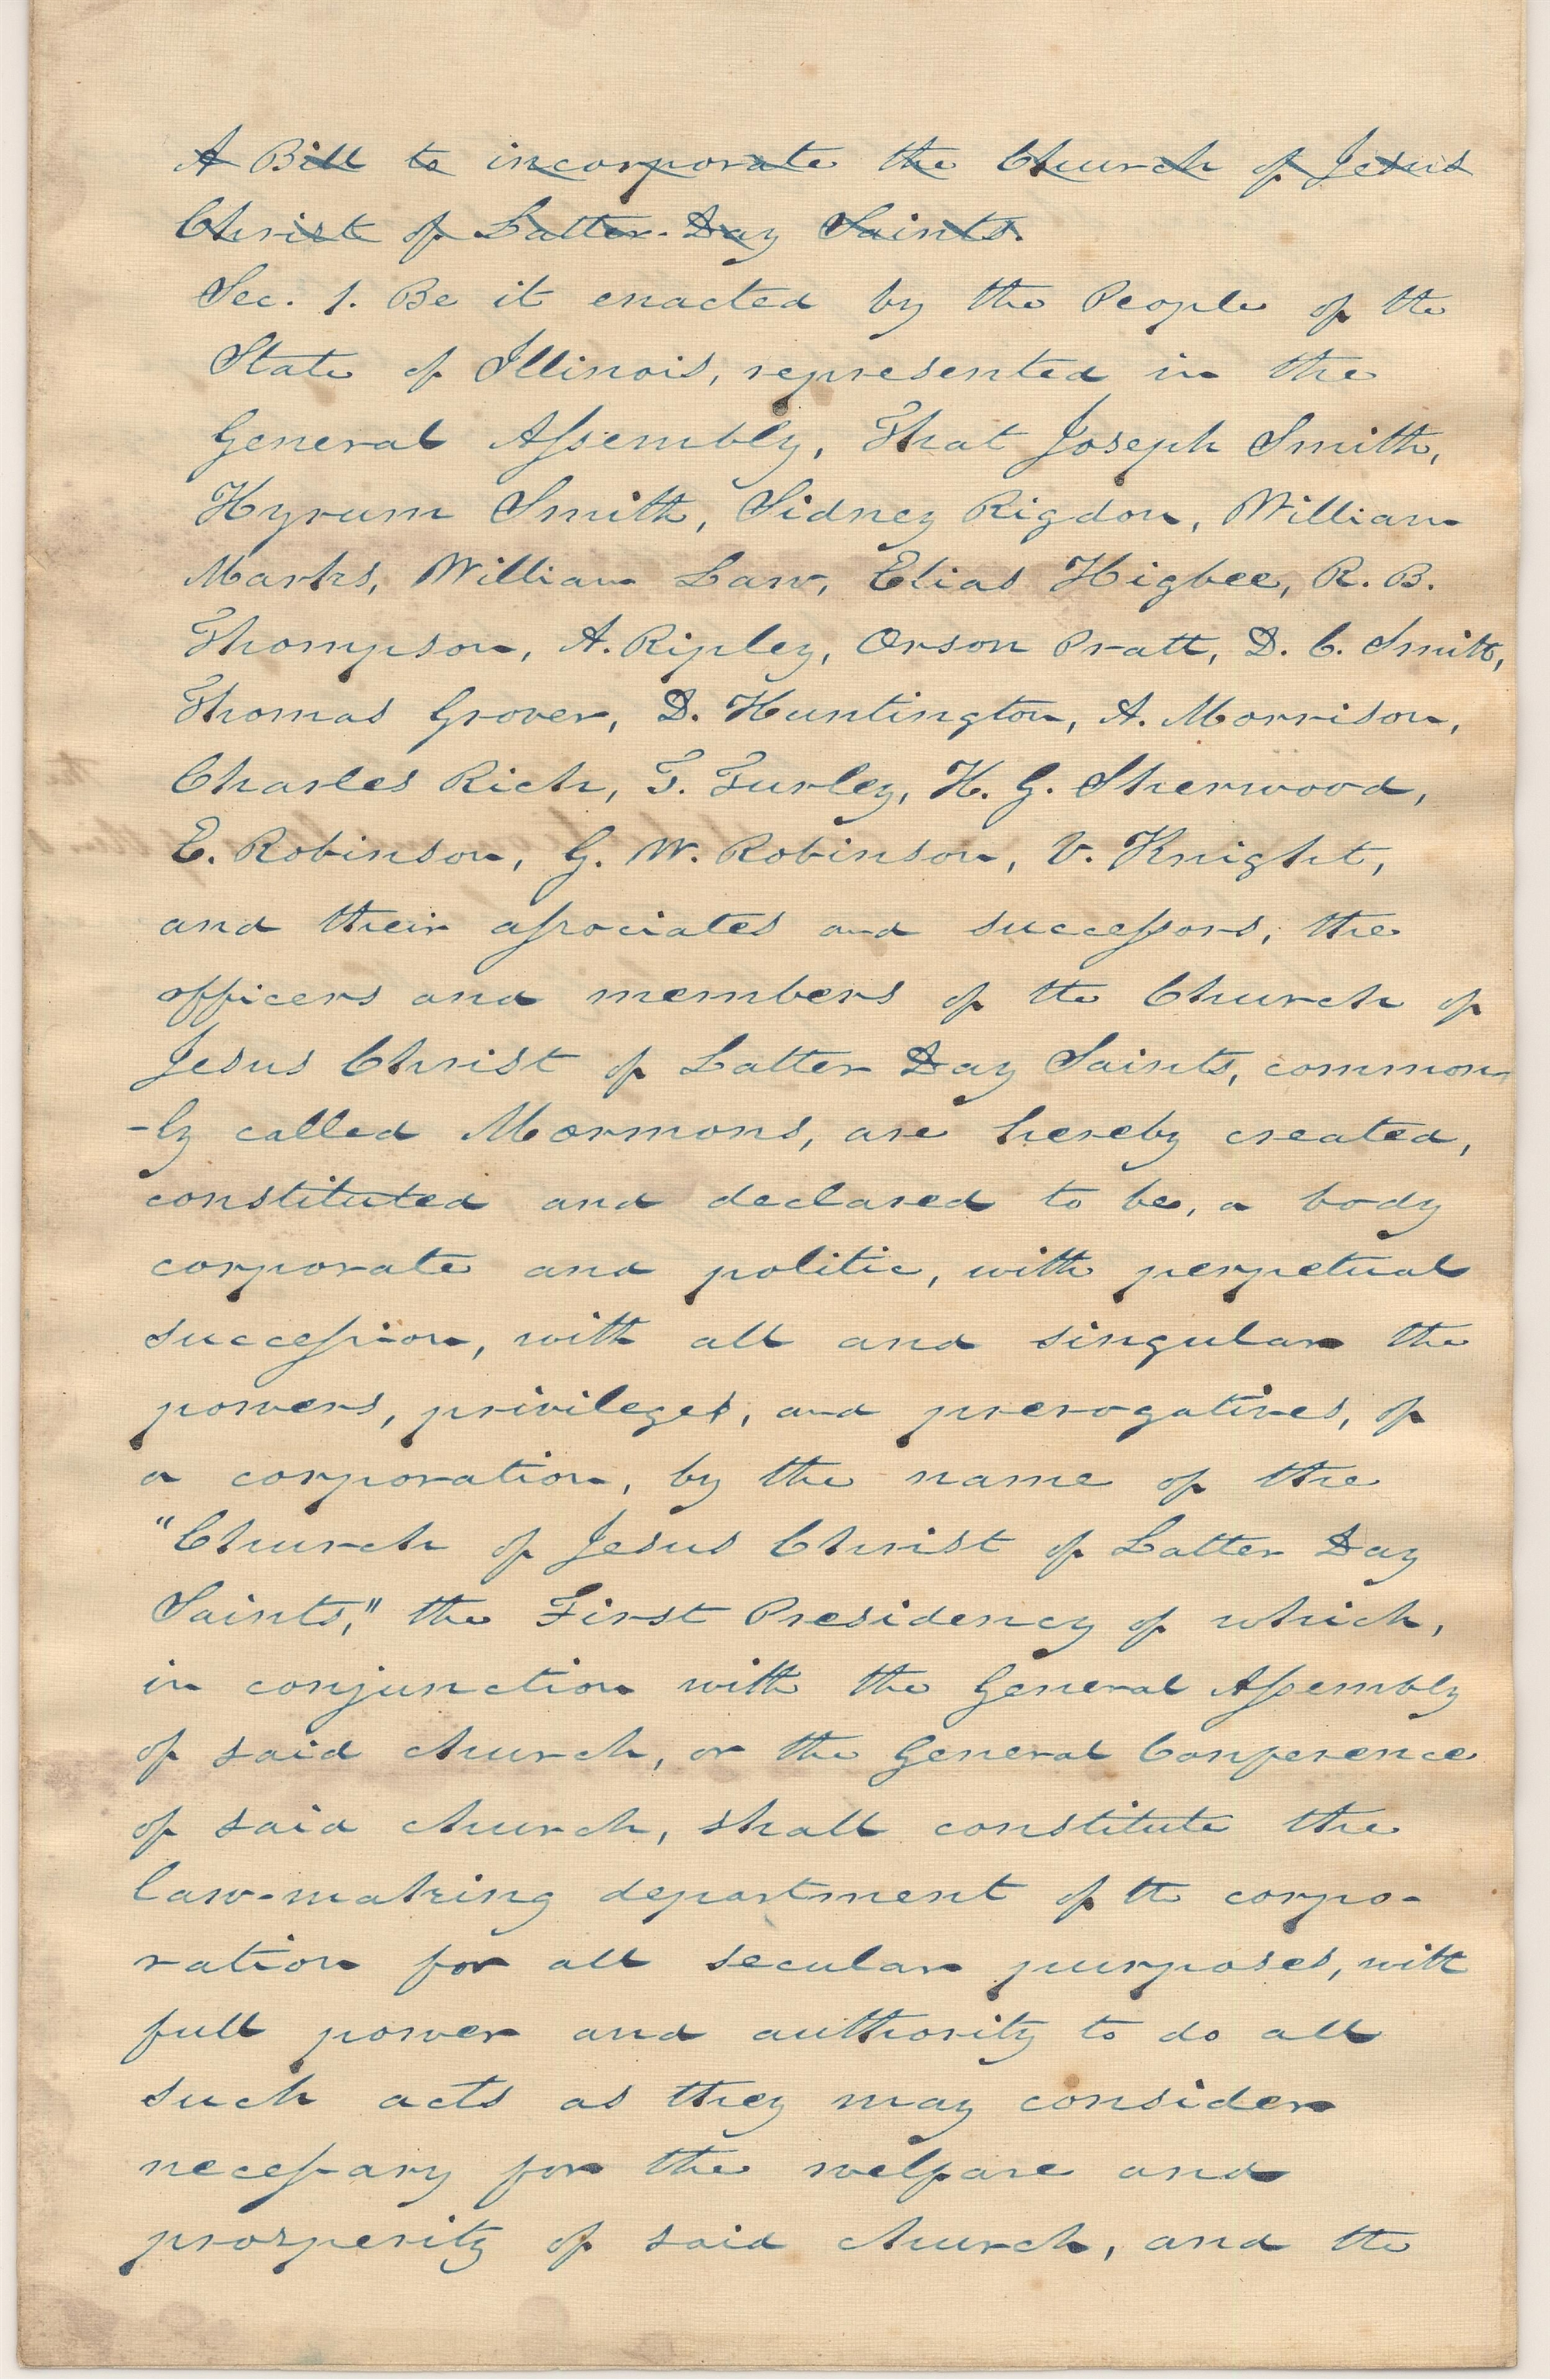 A Bill to incorporate the Church of Jesus
Christ of Latter-Day Saints.
Sec. 1. Be it enacted by the People of the
State of Illinois, represented in the
General Assembly, That Joseph Smith,
Hyrum Smith, Sidney Rigdon, William
Marks, William Law, Elias Higbee, R. B.
Thompson, A. Ripley, Orson Pratt, D. C. Smith,
Thomas Grover, D. Huntington, A. Morrison,
Charles Rich, T. Turley, H. G. Sherwood,
E. Robinson, G. W. Robinson, V. Knight,
and their associates and successors, the
officers and members of the Church of
Jesus Christ of Latter Day Saints, common
-ly called Mormons, are hereby created,
constituted and declared to be, a body
corporate and politic, with perpetual
succession, with all and singular the
powers, privileges, and prerogatives, of
a corporation, by the name of the
"Church of Jesus Christ of Latter Day
Saints," the First Presidency of which,
in conjunction with the General Assembly
of said church, or the General Conference
of said church, shall constitute the
law-making department of the corpo-
ration for all secular purposes, with
full power and authority to do all
such acts as they may consider
necessary for the welfare and
prosperity of said church, and the